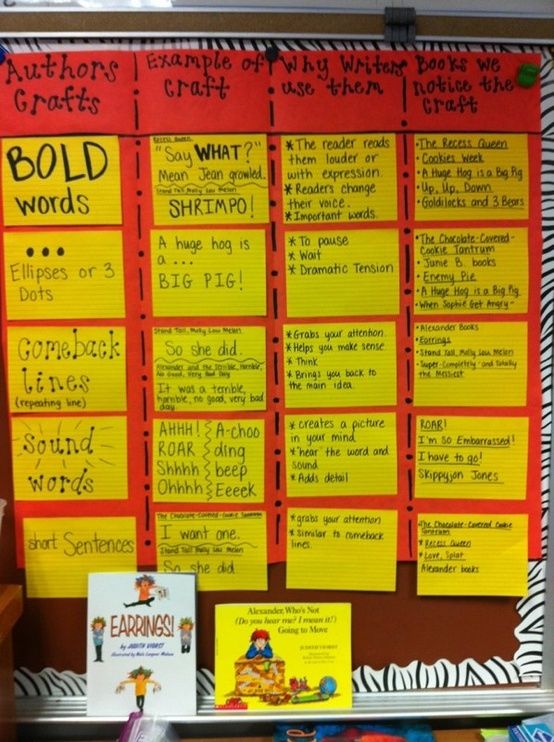 Authors
Crafts
Example of
Craft
Why Writers
use them
Books we
notice the
craft
BOLD
words
Recess Queen
"Say WHAT?"
Mean Jean growled.
Stand Tall Molly Lou Melon
SHRIMPO!
* The reader reads
them louder or
with expression.
* Readers change
their voice.
* Important words.
• The Recess Queen
• Cookies Week
• A Huge Hog is a Big Pig
• Up, Up, Down
• Goldilocks and 3 Bears
•••
Ellipses or 3
Dots
A huge hog is
a ...
BIG PIG!
* To pause
* Wait
* Dramatic Tension
• The Chocolate-Covered-
Cookie Tantrum
• Junie B. books
• Enemy Pie
• A Huge Hog is a Big Pig
• When Sophie Get Angry-
Comeback
lines
(repeating line)
Stand Tall, Molly Lou Melon
So she did.
Alexander and the Terrible, Horrible,
No Good, Very Bad Day
It was a terrible,
horrible, no good, very bad
day.
* Grabs your attention.
* Helps you make sense
* Think
* Brings you back to
the main idea.
• Alexander Books
• Earrings
• Stand Tall, Molly Lou Melon
• Super-Completely and Totally
the Messiest
Sound
words
AHHH! A-choo
ROAR ding
Shhhh beep
Ohhhh Eeeek
* creates a picture
in your mind
* "hear" the word and
sound
* Adds detail
ROAR!
I'm So Embarrassed!
I have to go!
Skippyjon Jones
short Sentences
The Chocolate-Covered-Cookie Tantrum
I want one.
Stand Tall Molly Lou Melon
So she did
* grabs your attention
* similar to comeback
lines.
• The Chocolate-Covered Cookie
Tantrum
* Recess Queen
* Love, Splat
Alexander books
EARRINGS!
by JUDITH VIORST
Illustrated by Nola Langner Malone
Alexander, Who's Not
(Do you hear me? I mean it!)
Going to Move
JUDITH VIORST